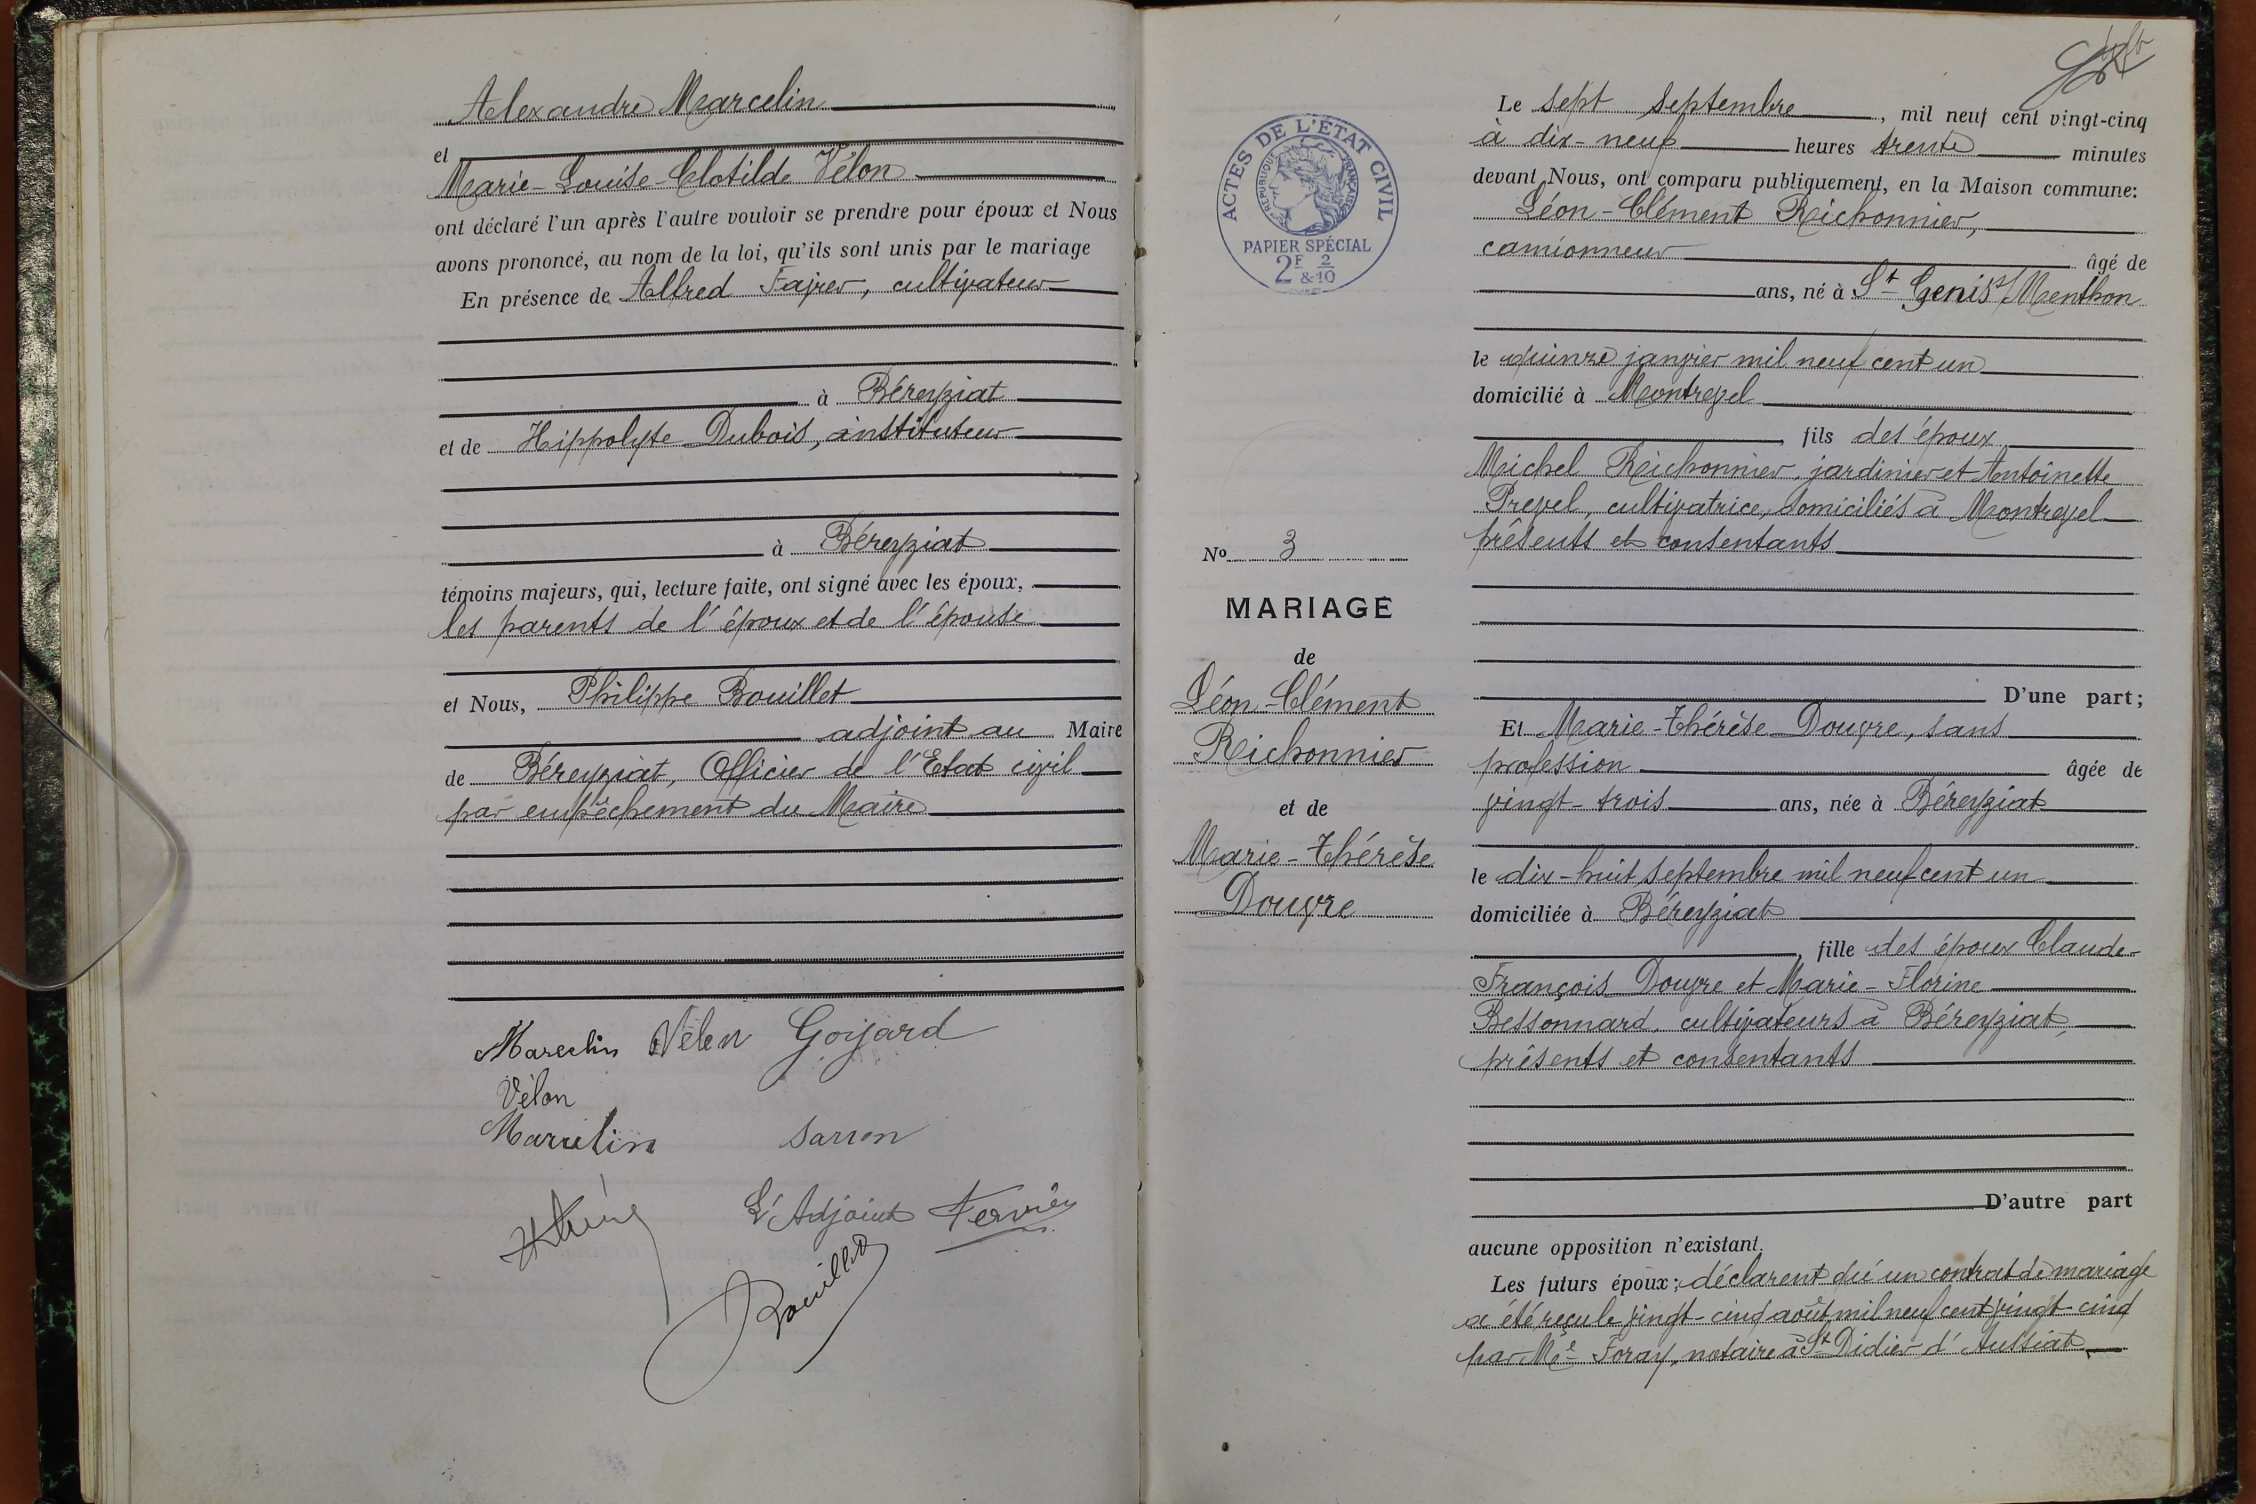 Alexandre Marcelin
et
Marie-Louise-Clotilde Vélon
ont déclaré l'un après l'autre vouloir se prendre pour époux et Nous
avons prononcé, au nom de la loi, qu'ils sont unis par le mariage
En présence de Alfred Favier, cultivateur
à Béreyziat
et de Hippolyte Dubois, instituteur
à Béreyziat
témoins majeurs, qui, lecture faite, ont signé avec les époux,
les parents de l'époux et de l'épouse
et Nous, Philippe Bouillet
adjoint au Maire
de Béreyziat, Officier de l'Etat civil
par empêchement du Maire
Marcelin Vélon Goyard
Vélon
Marcelin Sarron
L'Adjoint
Bouillet
Le sept septembre, mil neuf cent vingt-cinq
à dix-neuf heures trente minutes
devant Nous, ont comparu publiquement, en la Maison commune:
Léon-Clément Richonnier,
camionneur âgé de
ans, né à St Genis s/ Menthon
le quinze janvier mil neuf cent un
domicilié à Montrevel
fils des époux
Michel Richonnier, jardinier et Antoinette
Prevel, cultivatrice, domiciliés à Montrevel
présents et consentants
D'une part;
Et Marie-Thérèse Douvre, sans
profession âgée de
vingt-trois ans, née à Béreyziat
le dix-huit septembre mil neuf cent un
domiciliée à Béreyziat
fille des époux Claude-
François Douvre et Marie-Florine
Bessonnard, cultivateurs à Béreyziat,
présents et consentants
D'autre part
aucune opposition n'existant.
Les futurs époux; déclarent qu'un contrat de mariage
a été reçu le vingt-cinq août mil neuf cent vingt-cinq
par Me Foray, notaire à St Didier d'Aussiat
ACTES DE L'ÉTAT CIVIL
RÉPUBLIQUE FRANÇAISE
PAPIER SPÉCIAL
2F & 2/10
No 3
MARIAGE
de
Léon-Clément
Richonnier
et de
Marie-Thérèse
Douvre